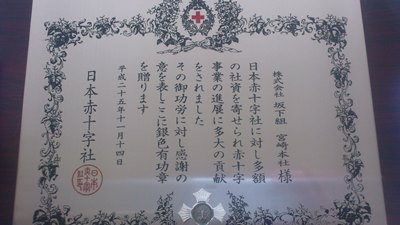 株式会社 坂下組 宮崎本社 様
日本赤十字社に対し多額
の社資を寄せられ赤十字
事業の進展に多大の貢献
をされました
その御功労に対し感謝の
意を表しここに銀色有功章
を贈ります
平成二十五年十一月十四日
日本赤十字社